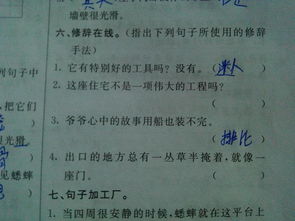 墙壁很光滑。
六、修辞在线。(指出下列句子所使用的修辞
手法)
1. 它有特别好的工具吗?没有。( )
句子中
2. 这座住宅不是一项伟大的工程吗?
,把它们
( )
3. 爷爷心中的故事用船也装不完。
很光滑
(排比)
4. 出口的地方总有一丛草半掩着,就像一
见蟋蟀
座门。 ( )
七、句子加工厂。
1. 当四周很安静的时候,蟋蟀就在这平台上